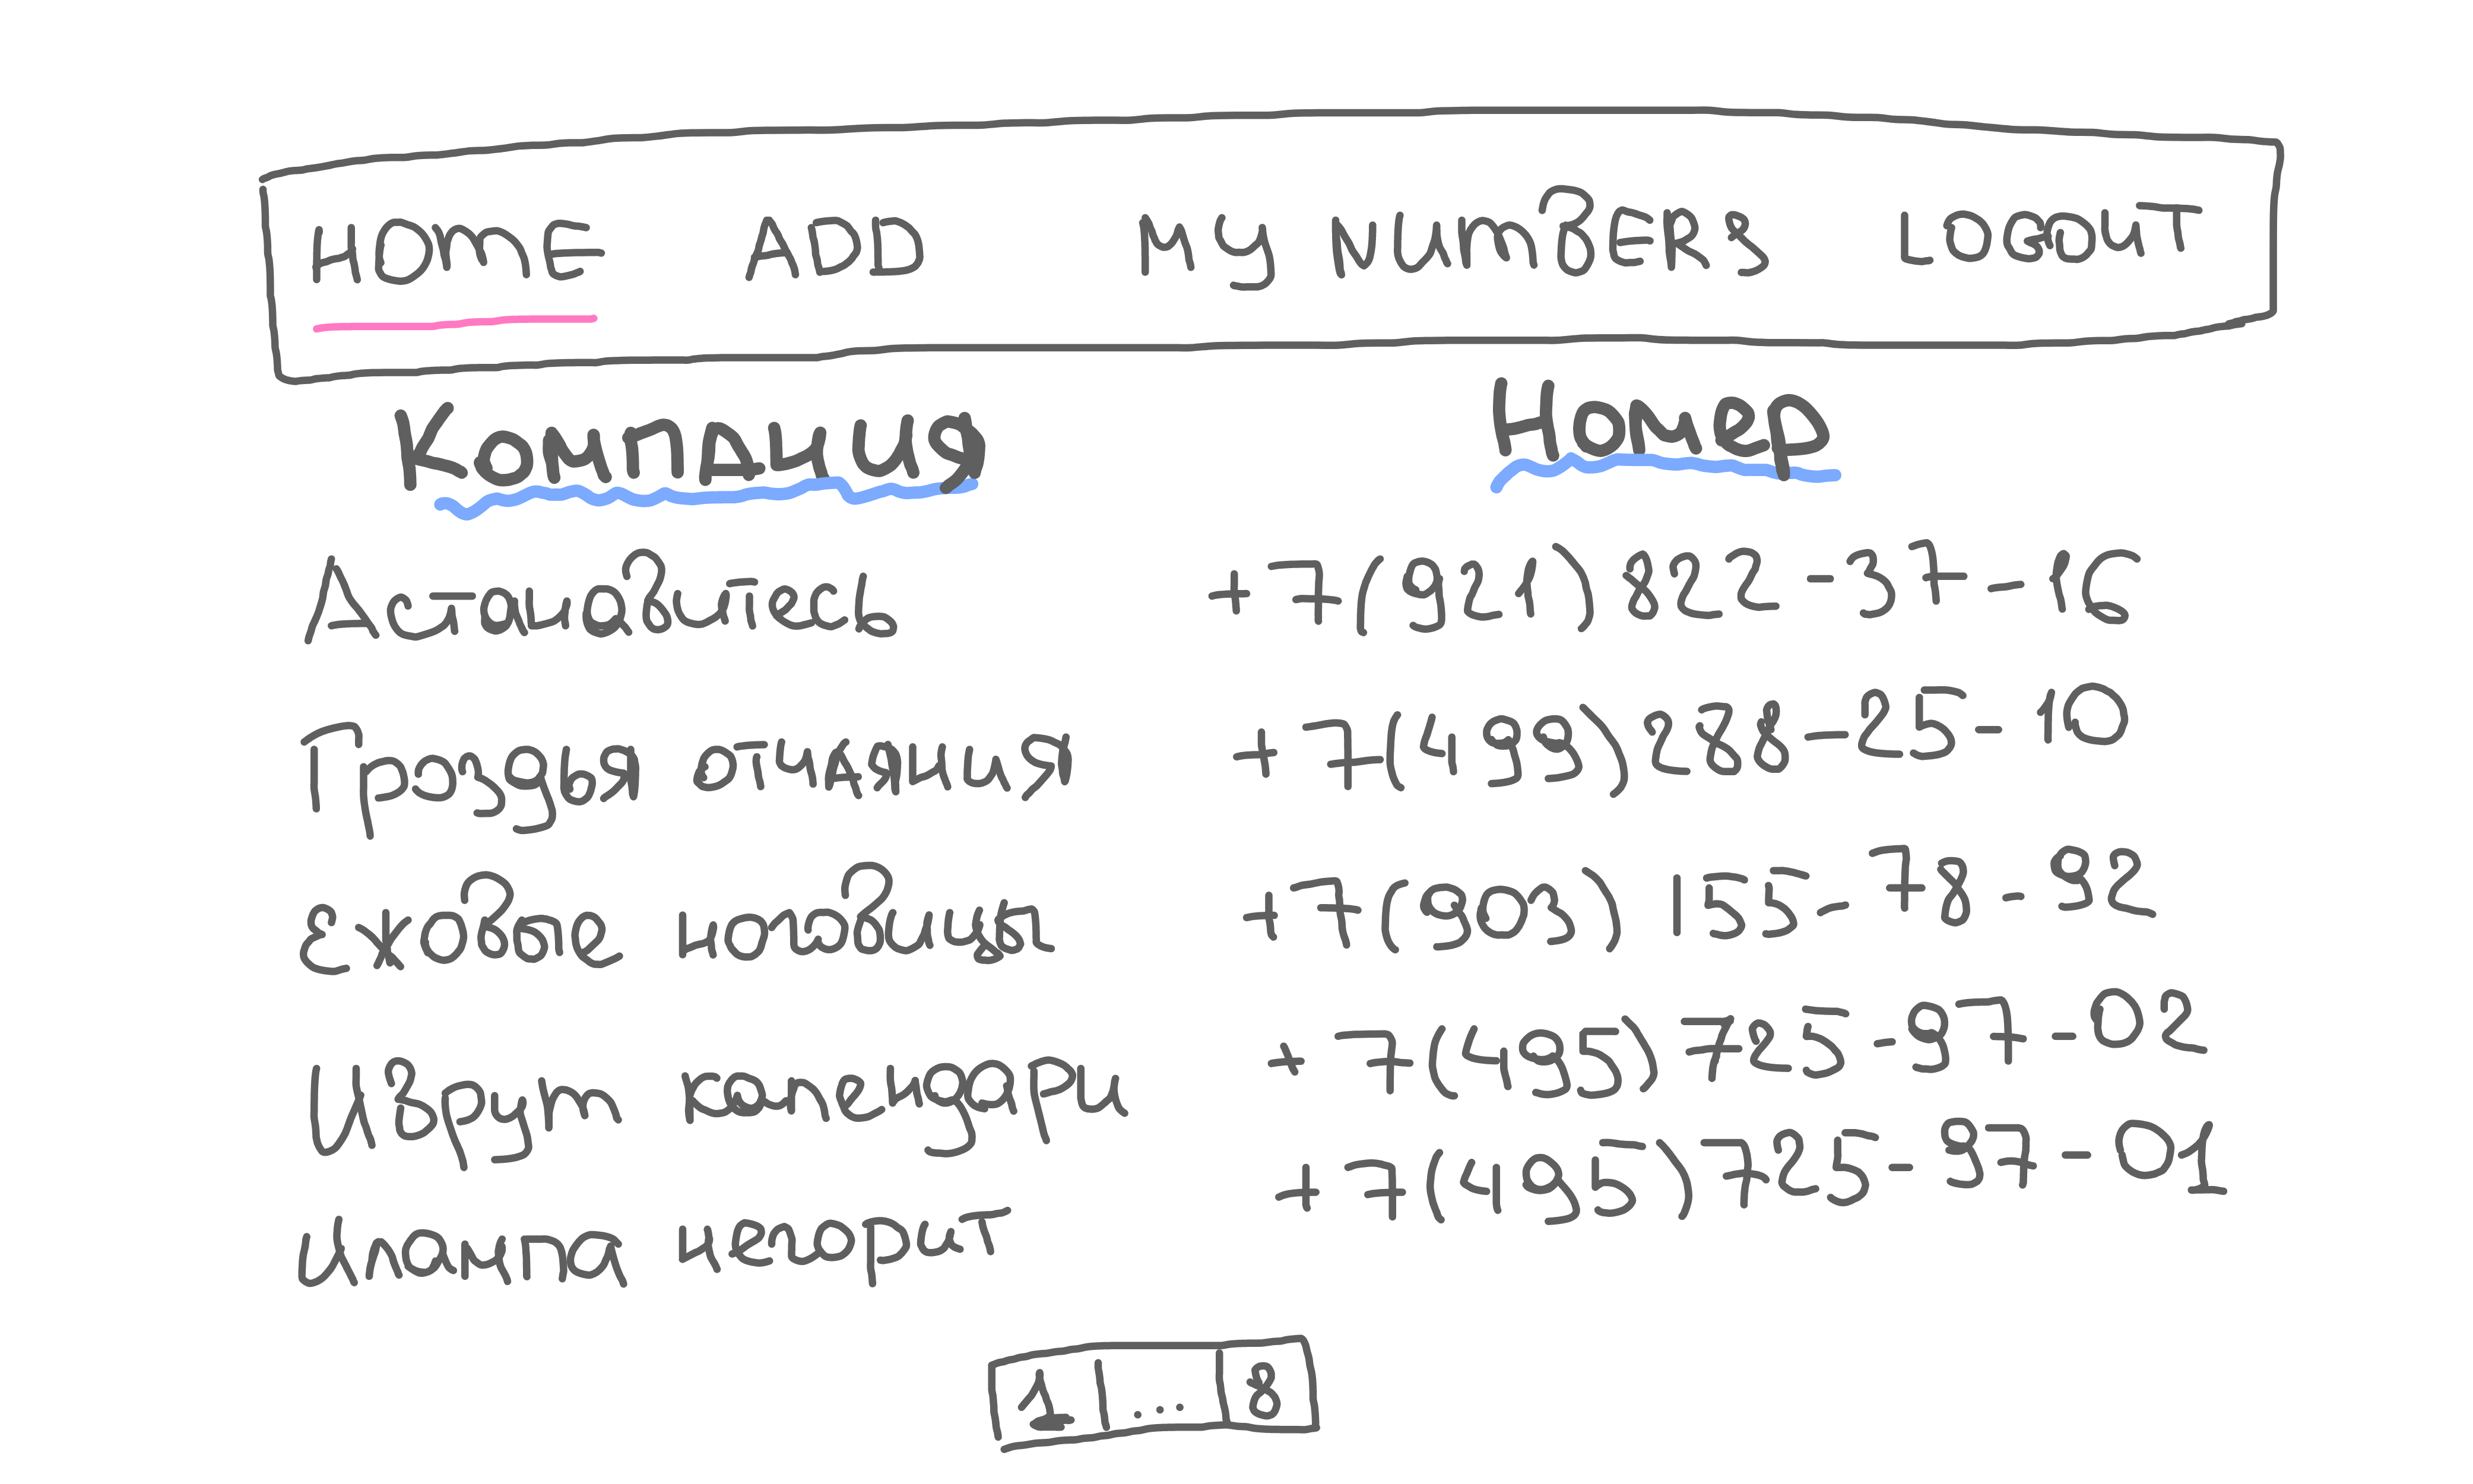 HOME ADD MY NUMBERS LOGOUT
Компания Номер
Астановитесь +7(921)822-37-16
Гроздья отчаяния +7(499)288-25-10
Ежовые ноговицы +7(903)155-78-92
Иврут календари +7(495)725-97-02
Илампа негорит +7(495)725-97-01
1 ... 8